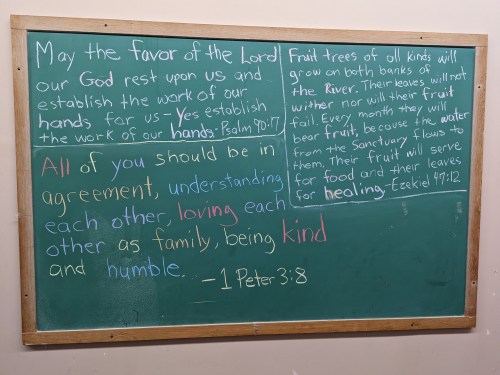 May the favor of the Lord
our God rest upon us and
establish the work of our
hands for us - Yes establish
the work of our hands - Psalm 90:17
Fruit trees of all kinds will
grow on both banks of
the River. Their leaves will not
wither nor will their fruit
fail. Every month they will
bear fruit, because the water
from the Sanctuary flows to
them. Their fruit will serve
for food and their leaves
for healing - Ezekiel 47:12
All of you should be in
agreement, understanding
each other, loving each
other as family, being kind
and humble.
- 1 Peter 3:8